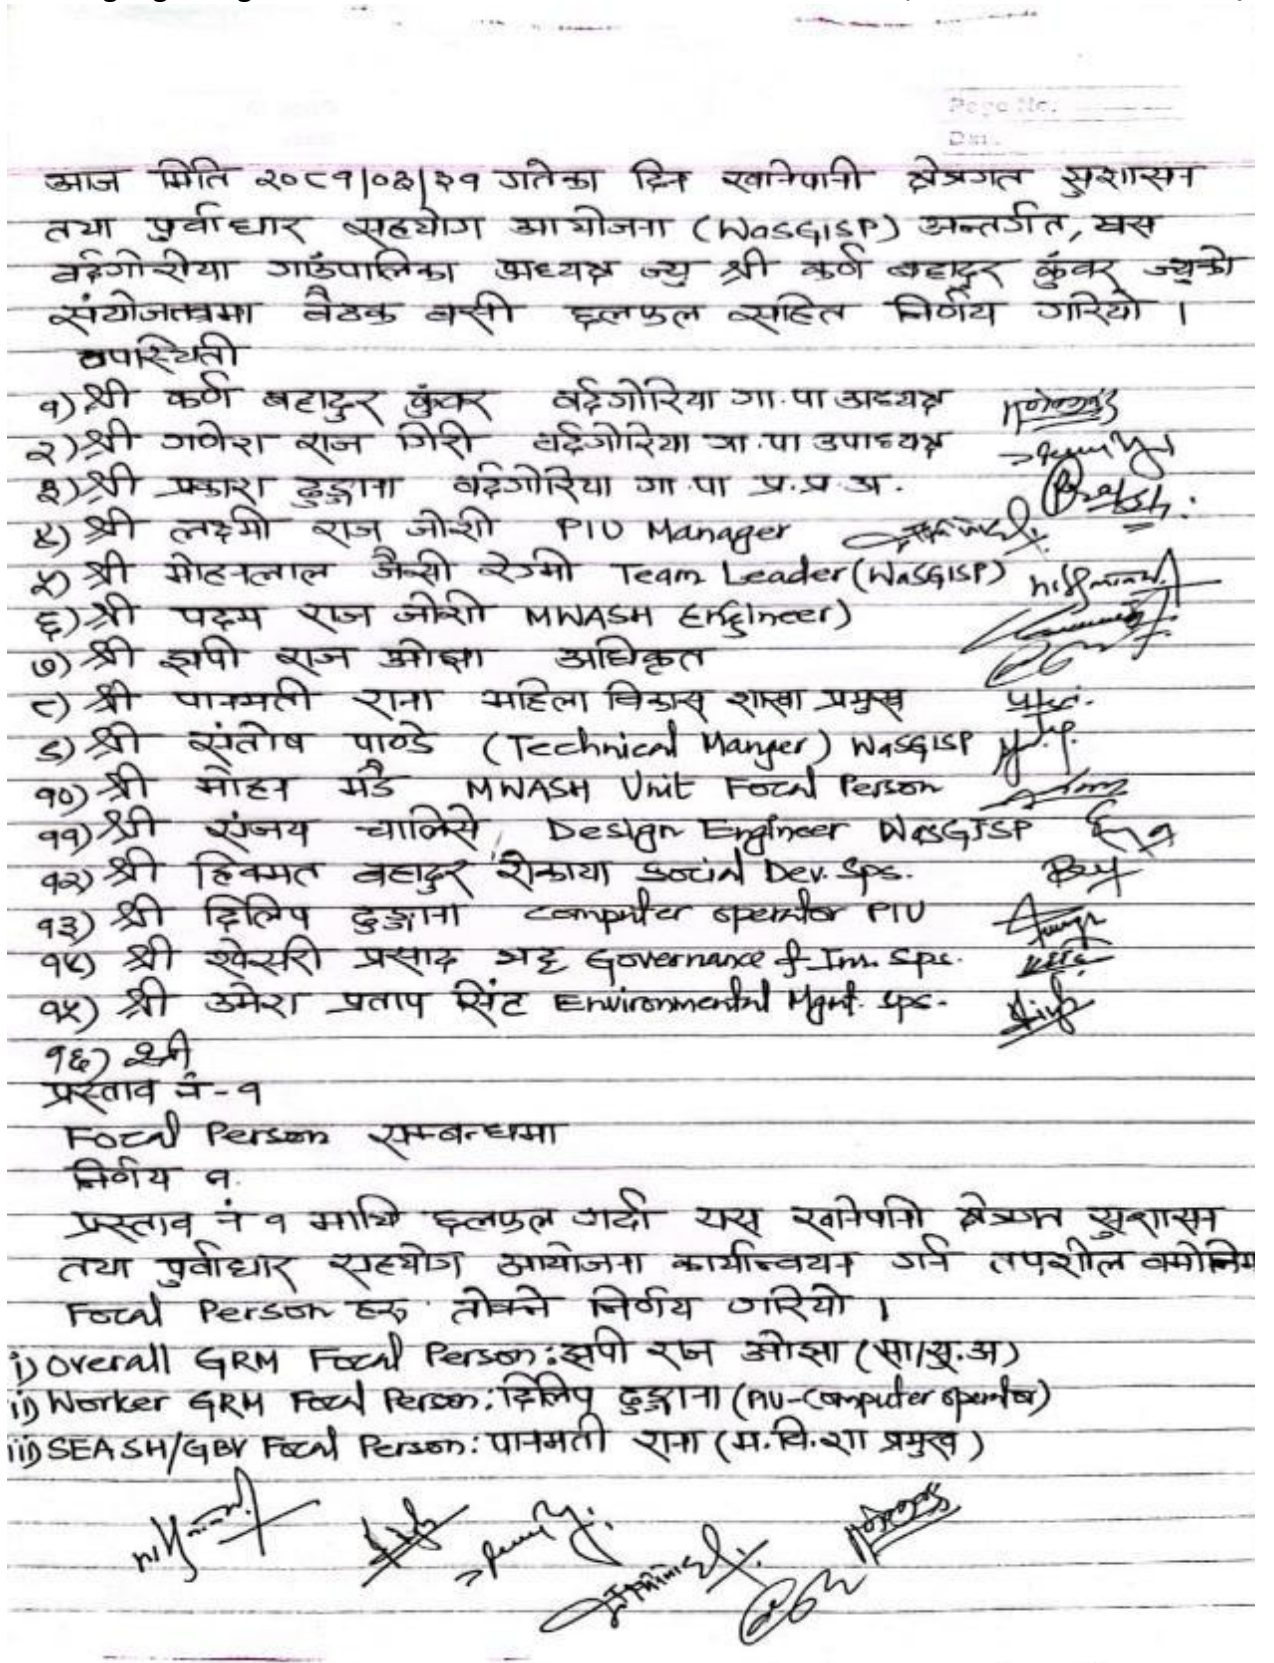 Page No.
आज मिति २०८१/०३/३१ गतेका दिन खानेपानी क्षेत्रगत सुशासन
तथा पुर्वाधार सहयोग आयोजना (WaSGISP) अन्तर्गत, यस
बर्दगोरीया गाउंपालिका अध्यक्ष ज्यु श्री कर्ण बहादुर कुंवर ज्युको
संयोजतत्वमा बैठक बसी छलफल सहित निर्णय गरियो ।
उपस्थिती
१) श्री कर्ण बहादुर कुंवर बर्दगोरिया गा.पा अध्यक्ष
२) श्री गणेश राज गिरी बर्दगोरिया गा.पा उपाध्यक्ष
३) श्री प्रकाश ढुङ्गाना बर्दगोरिया गा.पा प्र.प्र.अ.
४) श्री लक्ष्मी राज जोशी PIU Manager
५) श्री मोहनलाल जैसी रेग्मी Team Leader (WaSGISP)
६) श्री पदम राज जोशी MWASH Engineer)
७) श्री झपी राज ओझा अधिकृत
८) श्री पानमती राना महिला विकास शाखा प्रमुख
९) श्री संतोष पाण्डे (Technical Manger) WaSGISP
१०) श्री मोहन मडै MWASH Unit Focal Person
११) श्री संजय चालिसे, Design Engineer WaSGISP
१२) श्री हिक्मत बहादुर रोकाया Social Dev. Sps.
१३) श्री दिलिप ढुङ्गाना Computer operator PIU
१४) श्री प्रसाद भट्ट Governance & Im. Sps.
१५) श्री उमेश प्रताप सिंह Environmental Mgmt. Sps.
१६) श्री
प्रस्ताव नं-१
Focal Person सम्बन्धमा
निर्णय १.
प्रस्ताव नं १ माथि छलफल गर्दा यस खानेपानी क्षेत्रगत सुशासन
तथा पुर्वाधार सहयोग आयोजना कार्यान्वयन गर्न तपशील बमोजिम
Focal Person हरु तोक्ने निर्णय गरियो ।
i) Overall GRM Focal Person: झपी राज ओझा (सा.सु.अ)
ii) Worker GRM Focal Person: दिलिप ढुङ्गाना (PIU-Computer operator)
iii) SEASH/GBV Focal Person: पानमती राना (म.वि.शा प्रमुख)